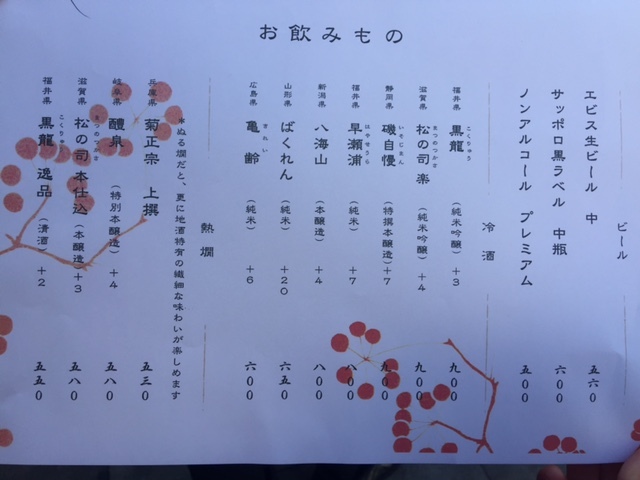 お飲みもの
ビール
エビス生ビール 中 五六〇
サッポロ黒ラベル 中瓶 六〇〇
ノンアルコール プレミアム 五〇〇
冷酒
福井県 黒龍 こくりゅう (純米吟醸) +3 九〇〇
滋賀県 松の司 楽 まつのつかさ (純米吟醸) +4 九〇〇
静岡県 磯自慢 いそじまん (特撰本醸造) +7 九〇〇
福井県 早瀬浦 はやせうら (純米) +7 八〇〇
新潟県 八海山 (本醸造) +4 八〇〇
山形県 ばくれん (純米) +20 六五〇
広島県 亀齢 きれい (純米) +6 六〇〇
熱燗
*ぬる燗だと、更に地酒特有の繊細な味わいが楽しめます
兵庫県 菊正宗 上撰 五三〇
岐阜県 醴泉 (特別本醸造) +4 五八〇
滋賀県 松の司 本仕込 まつのつかさ (本醸造) +3 五八〇
福井県 黒龍 逸品 こくりゅう (清酒) +2 五五〇